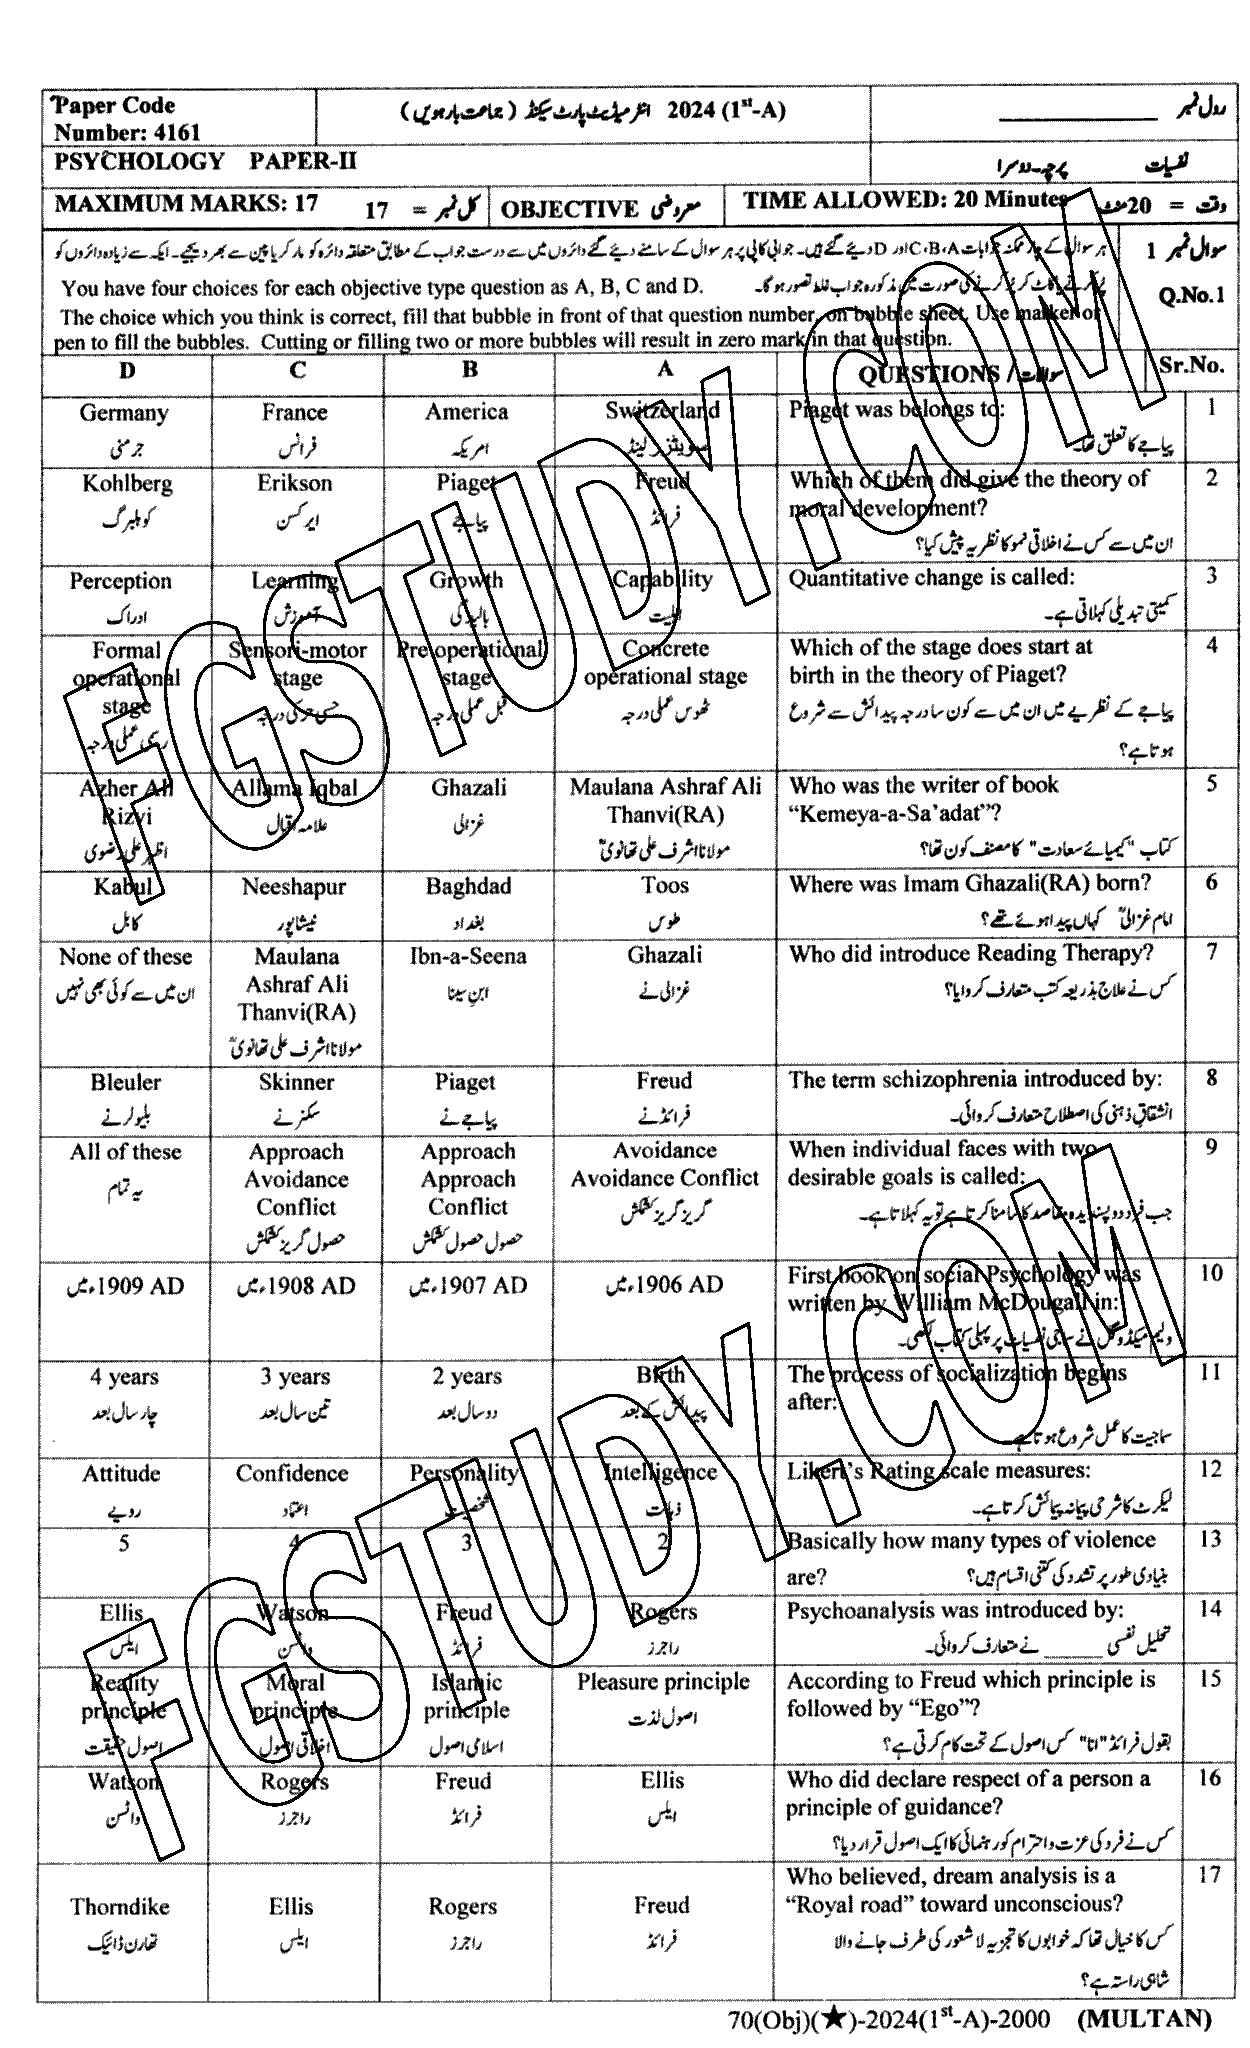 Paper Code
Number: 4161
2024 (1st-A) انٹرمیڈیٹ پارٹ سیکنڈ (جماعت بارھویں)
رول نمبر ____________
PSYCHOLOGY PAPER-II
نفسیات پرچہ۔دوسرا
MAXIMUM MARKS: 17
کل نمبر = 17
OBJECTIVE معروضی
TIME ALLOWED: 20 Minutes
وقت = 20 منٹ
سوال نمبر 1
ہر سوال کے چار ممکنہ جوابات A،B،C اور D دیئے گئے ہیں۔ جوابی کاپی پر ہر سوال کے سامنے دیئے گئے دائروں میں سے درست جواب کے مطابق متعلقہ دائرہ کو مارکر یا پین سے بھر دیجیے۔ ایک سے زیادہ دائروں کو
پُر کرنے یا کاٹ کر پُر کرنے کی صورت میں مذکورہ جواب غلط تصور ہوگا۔
Q.No.1
You have four choices for each objective type question as A, B, C and D.
The choice which you think is correct, fill that bubble in front of that question number, on bubble sheet. Use marker or
pen to fill the bubbles. Cutting or filling two or more bubbles will result in zero mark in that question.
D C B A QUESTIONS / سوالات Sr.No.
Germany France America Switzerland Piaget was belongs to: 1
جرمنی فرانس امریکہ سویٹزرلینڈ پیاجے کا تعلق تھا۔
Kohlberg Erikson Piaget Freud Which of them did give the theory of 2
moral development?
کوہلبرگ ایرکسن پیاجے فرائڈ
ان میں سے کس نے اخلاقی نمو کا نظریہ پیش کیا؟
Perception Learning Growth Capability Quantitative change is called: 3
ادراک آموزش بالیدگی اہلیت کمیتی تبدیلی کہلاتی ہے۔
Formal Sensori-motor Pre operational Concrete Which of the stage does start at 4
operational stage stage operational stage birth in the theory of Piaget?
stage حسی حرکی درجہ قبل عملی درجہ ٹھوس عملی درجہ پیاجے کے نظریے میں ان میں سے کون سا درجہ پیدائش سے شروع
رسمی عملی درجہ ہوتا ہے؟
Azher Ali Allama Iqbal Ghazali Maulana Ashraf Ali Who was the writer of book 5
Rizvi علامہ اقبال غزالی Thanvi(RA) “Kemeya-a-Sa’adat”?
اظہر علی رضوی مولانا اشرف علی تھانویؒ کتاب "کیمیائے سعادت" کا مصنف کون تھا؟
Kabul Neeshapur Baghdad Toos Where was Imam Ghazali(RA) born? 6
کابل نیشاپور بغداد طوس امام غزالیؒ کہاں پیدا ہوئے تھے؟
None of these Maulana Ibn-a-Seena Ghazali Who did introduce Reading Therapy? 7
ان میں سے کوئی بھی نہیں Ashraf Ali ابنِ سینا غزالی نے کس نے علاج بذریعہ کتب متعارف کروایا؟
Thanvi(RA)
مولانا اشرف علی تھانویؒ
Bleuler Skinner Piaget Freud The term schizophrenia introduced by: 8
بلیولر نے سکنر نے پیاجے نے فرائڈ نے انشقاقِ ذہنی کی اصطلاح متعارف کروائی۔
All of these Approach Approach Avoidance When individual faces with two 9
یہ تمام Avoidance Approach Avoidance Conflict desirable goals is called:
Conflict Conflict گریز گریز کشمکش جب فرد دو پسندیدہ مقاصد کا سامنا کرتا ہے تو یہ کہلاتا ہے۔
حصول گریز کشمکش حصول حصول کشمکش
1909 AD،میں 1908 AD،میں 1907 AD،میں 1906 AD،میں First book on social Psychology was 10
written by William McDougall in:
ولیم میکڈوگل نے سماجی نفسیات پر پہلی کتاب لکھی۔
4 years 3 years 2 years Birth The process of socialization begins 11
چار سال بعد تین سال بعد دو سال بعد پیدائش کے بعد after:
سماجیت کا عمل شروع ہوتا ہے۔
Attitude Confidence Personality Intelligence Likert’s Rating scale measures: 12
رویے اعتماد شخصیت ذہانت لیکرٹ کا شرحی پیمانہ پیمائش کرتا ہے۔
5 4 3 2 Basically how many types of violence 13
are? بنیادی طور پر تشدد کی کتنی اقسام ہیں؟
Ellis Watson Freud Rogers Psychoanalysis was introduced by: 14
ایلس واٹسن فرائڈ راجرز تحلیل نفسی ______ نے متعارف کروائی۔
Reality Moral Islamic Pleasure principle According to Freud which principle is 15
principle principle principle اصول لذت followed by “Ego”?
اصول حقیقت اخلاقی اصول اسلامی اصول بقول فرائڈ "انا" کس اصول کے تحت کام کرتی ہے؟
Watson Rogers Freud Ellis Who did declare respect of a person a 16
واٹسن راجرز فرائڈ ایلس principle of guidance?
کس نے فرد کی عزت و احترام کو رہنمائی کا ایک اصول قرار دیا؟
Who believed, dream analysis is a 17
Thorndike Ellis Rogers Freud “Royal road” toward unconscious?
تھارن ڈائیک ایلس راجرز فرائڈ کس کا خیال تھا کہ خوابوں کا تجزیہ لاشعور کی طرف جانے والا
شاہی راستہ ہے؟
70(Obj)(★)-2024(1st-A)-2000 (MULTAN)
FGSTUDY.COM
FGSTUDY.COM